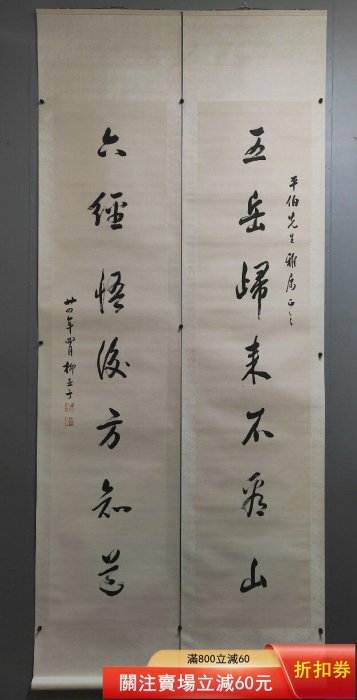 五岳歸來不看山
平伯先生雅屬正之
六經悟後方知道
廿四年四月柳亞子
滿800立減60
關注賣場立減60元
折扣券